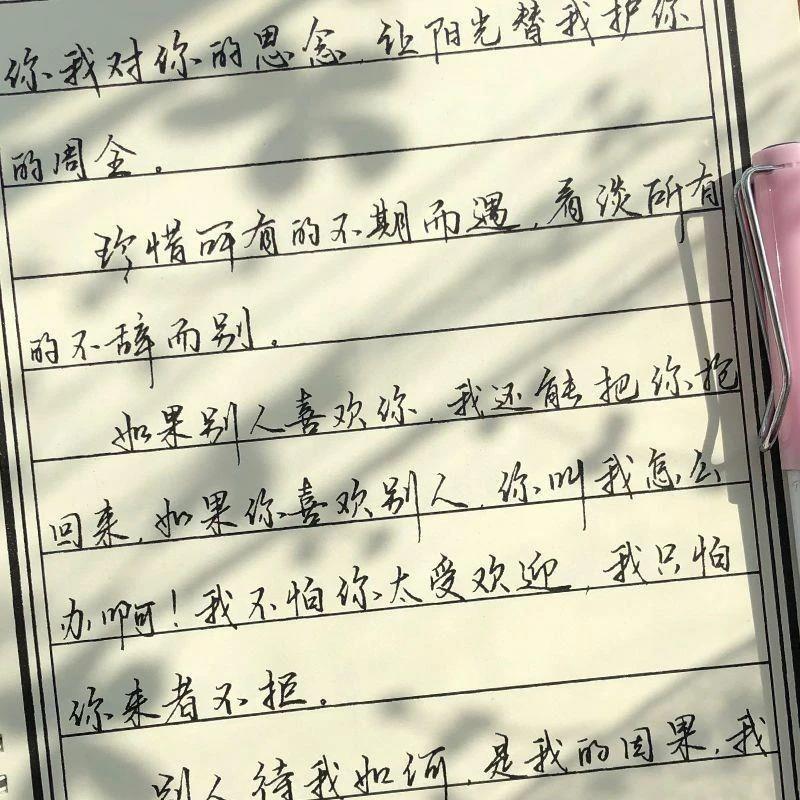 你我对你的思念，让阳光替我护你
的周全。
珍惜所有的不期而遇，看淡所有
的不辞而别。
如果别人喜欢你，我还能把你抢
回来，如果你喜欢别人，你叫我怎么
办啊！我不怕你太受欢迎，我只怕
你来者不拒。
别人待我如何，是我的因果，我